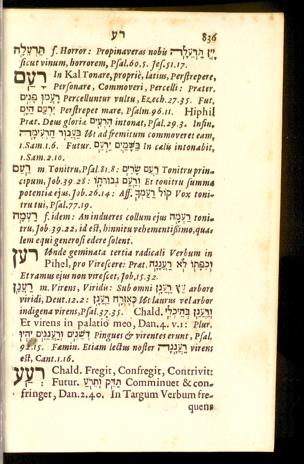 רע 836
יין תרעלה f. Horror: Propinaveras nobis תרעלה
sicut vinum, horrorem, Psal.60.5. Jes.51.17.
רעם In Kal Tonare, propriè, latius, Perstrepere,
Personare, Commoveri, Percelli: Præter.
רעמו פנים Percelluntur vultu, Ezech.27.35. Fut.
ירעם הים Perstrepet mare, Psalm.96.11. Hiphil
Præt. Deus gloria הרעים intonat, Psal.29.3. Infin.
בעבור הרעימה Ut ad fremitum commoveret eam,
1.Sam.1.6. Futur. בשמים ירעם In cælis intonabit,
1.Sam.2.10.
רעם m Tonitru, Psal.81.8: רעם שרים Tonitru prin-
cipum, Job.39.28: ורעם גבורותו Et tonitru summa
potentia ejus, Job.26.14: Aff. קול רעמך Vox toni-
tru tui, Psal.77.19.
רעמה f. idem: An indueres collum ejus רעמה toni-
tru, Job.39.22, id est, hinnitu vehementissimo, qua-
lem equi generosi edere solent.
רען Unde geminata tertia radicali Verbum in
Pihel, pro Virescere: Præt. וכפתו לא רעננה
Et ramus ejus non virescet, Job.15.32.
רענן m. Virens, Viridis: Sub omni עץ רענן arbore
viridi, Deut.12.2: כאזרח רענן Ut laurus vel arbor
indigena virens, Psal.37.35. Chald. ורענן בהיכלי
Et virens in palatio meo, Dan.4. v.1: Plur.
דשנים ורעננים יהיו Pingues & virentes erunt, Psal.
92.15. Fæmin. Etiam lectus noster רעננה virens
est, Cant.1.16.
רעע Chald. Fregit, Confregit, Contrivit:
Futur. תדק ותרע Comminuet & con-
fringet, Dan.2.40. In Targum Verbum fre-
quens